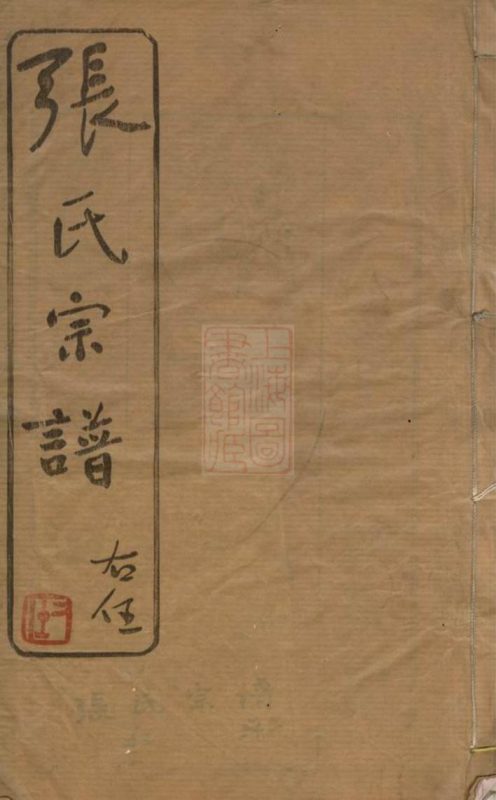 張氏宗譜
右任
上海圖書館藏